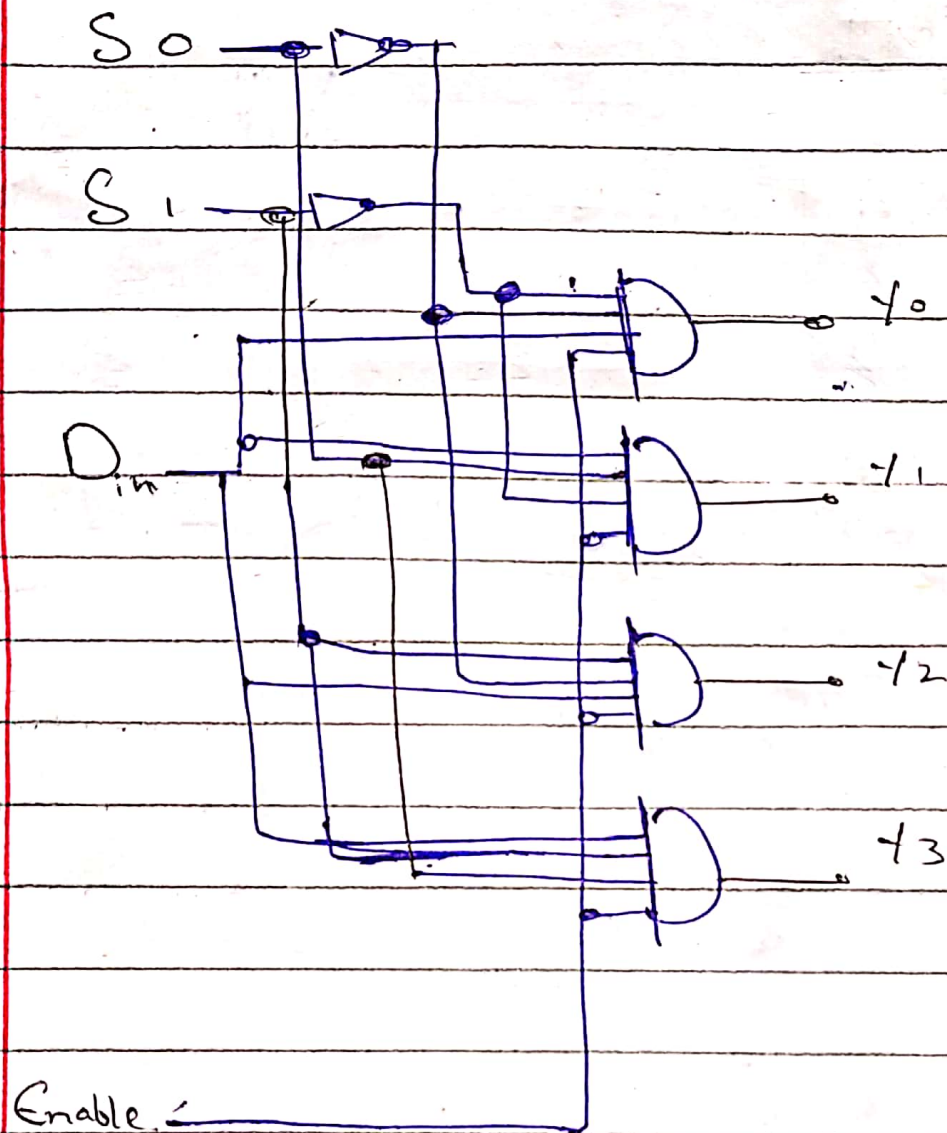 S0
S1
Y0
Din
Y1
Y2
Y3
Enable